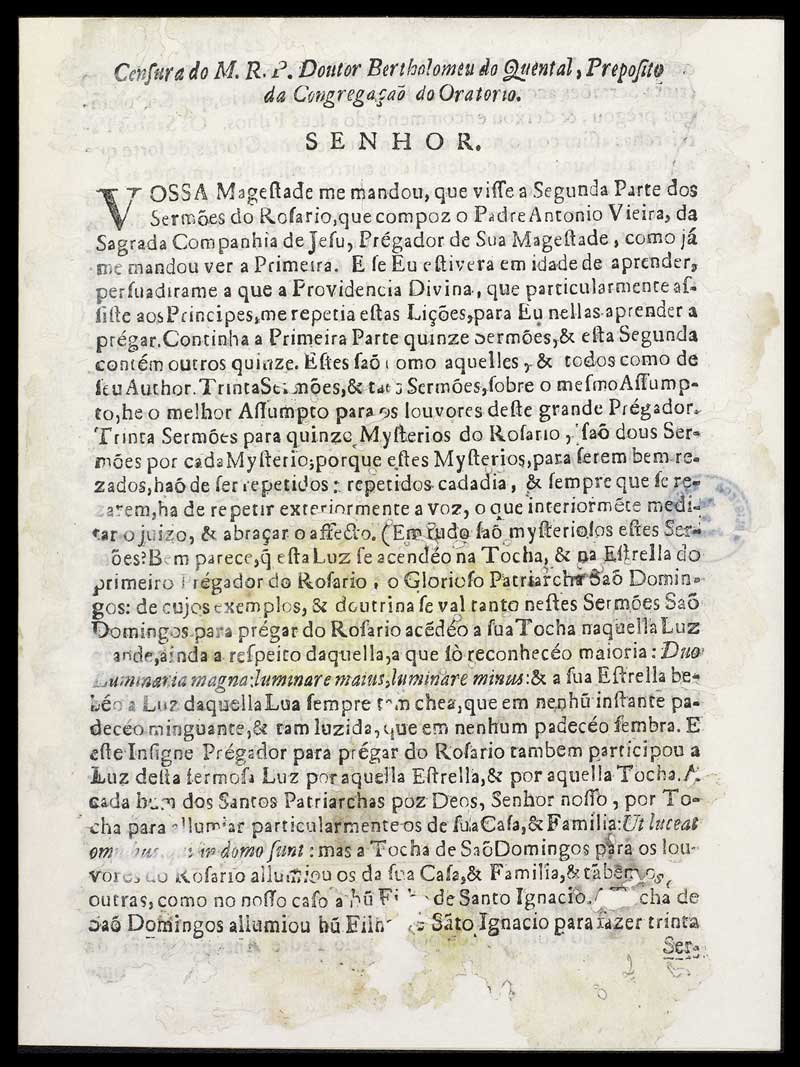 Cenſura do M. R. P. Doutor Bertholomeu do Quental, Prepoſito
da Congregaçaõ do Oratorio.
SENHOR.
VOSSA Mageſtade me mandou, que viſſe a Segunda Parte dos
Sermões do Roſario, que compoz o Padre Antonio Vieira, da
Sagrada Companhia de Jeſu, Prégador de Sua Mageſtade, como já
me mandou ver a Primeira. E ſe Eu eſtivera em idade de aprender,
perſuadirame a que a Providencia Divina, que particularmente aſ-
ſiſte aos Principes, me repetia eſtas Lições, para Eu nellas aprender a
prégar. Continha a Primeira Parte quinze Sermões, & eſta Segunda
contém outros quinze. Eſtes ſaõ como aquelles, & todos como de
ſeu Author. Trinta Sermões, & taes Sermões, ſobre o meſmo Aſſump-
to, he o melhor Aſſumpto para os louvores deſte grande Prégador.
Trinta Sermões para quinze Myſterios do Roſario, ſaõ dous Ser-
mões por cada Myſterio; porque eſtes Myſterios, para ſerem bem re-
zados, haõ de ſer repetidos: repetidos cada dia, & ſempre que ſe re-
zarem, ha de repetir exteriormente a voz, o que interiormẽte medi-
tar o juizo, & abraçar o affecto. (Em tudo ſaõ myſterioſos eſtes Ser-
ões? Bem parece, q̃ eſta Luz ſe acendéo na Tocha, & na Eſtrella do
primeiro Prégador do Roſario, o Glorioſo Patriarcha Saõ Domin-
gos: de cujos exemplos, & doutrina ſe val tanto neſtes Sermões Saõ
Domingos para prégar do Roſario acẽdéo a ſua Tocha naquella Luz
ande, ainda a reſpeito daquella, a que ſò reconhecéo maioria: Duo
Luminaria magna: luminare maius, luminare minus: & a ſua Eſtrella be-
béo a Luz daquella Lua ſempre tam chea, que em nenhũ inſtante pa-
decéo minguante, & tam luzida, que em nenhum padecéo ſembra. E
eſte Inſigne Prégador para prégar do Roſario tambem participou a
Luz deſta fermoſa Luz por aquella Eſtrella, & por aquella Tocha. A
cada hum dos Santos Patriarchas poz Deos, Senhor noſſo, por To-
cha para allumiar particularmente os de ſua Caſa, & Familia: Ut luceat
omnibus qui in domo ſunt: mas a Tocha de Saõ Domingos para os lou-
vores do Roſario allumiou os da ſua Caſa, & Familia, & tãbem os
outras, como no noſſo caſo a hũ Fi de Santo Ignacio. A Tocha de
Saõ Domingos allumiou hũ Filho de Sãto Ignacio para fazer trinta
Ser-